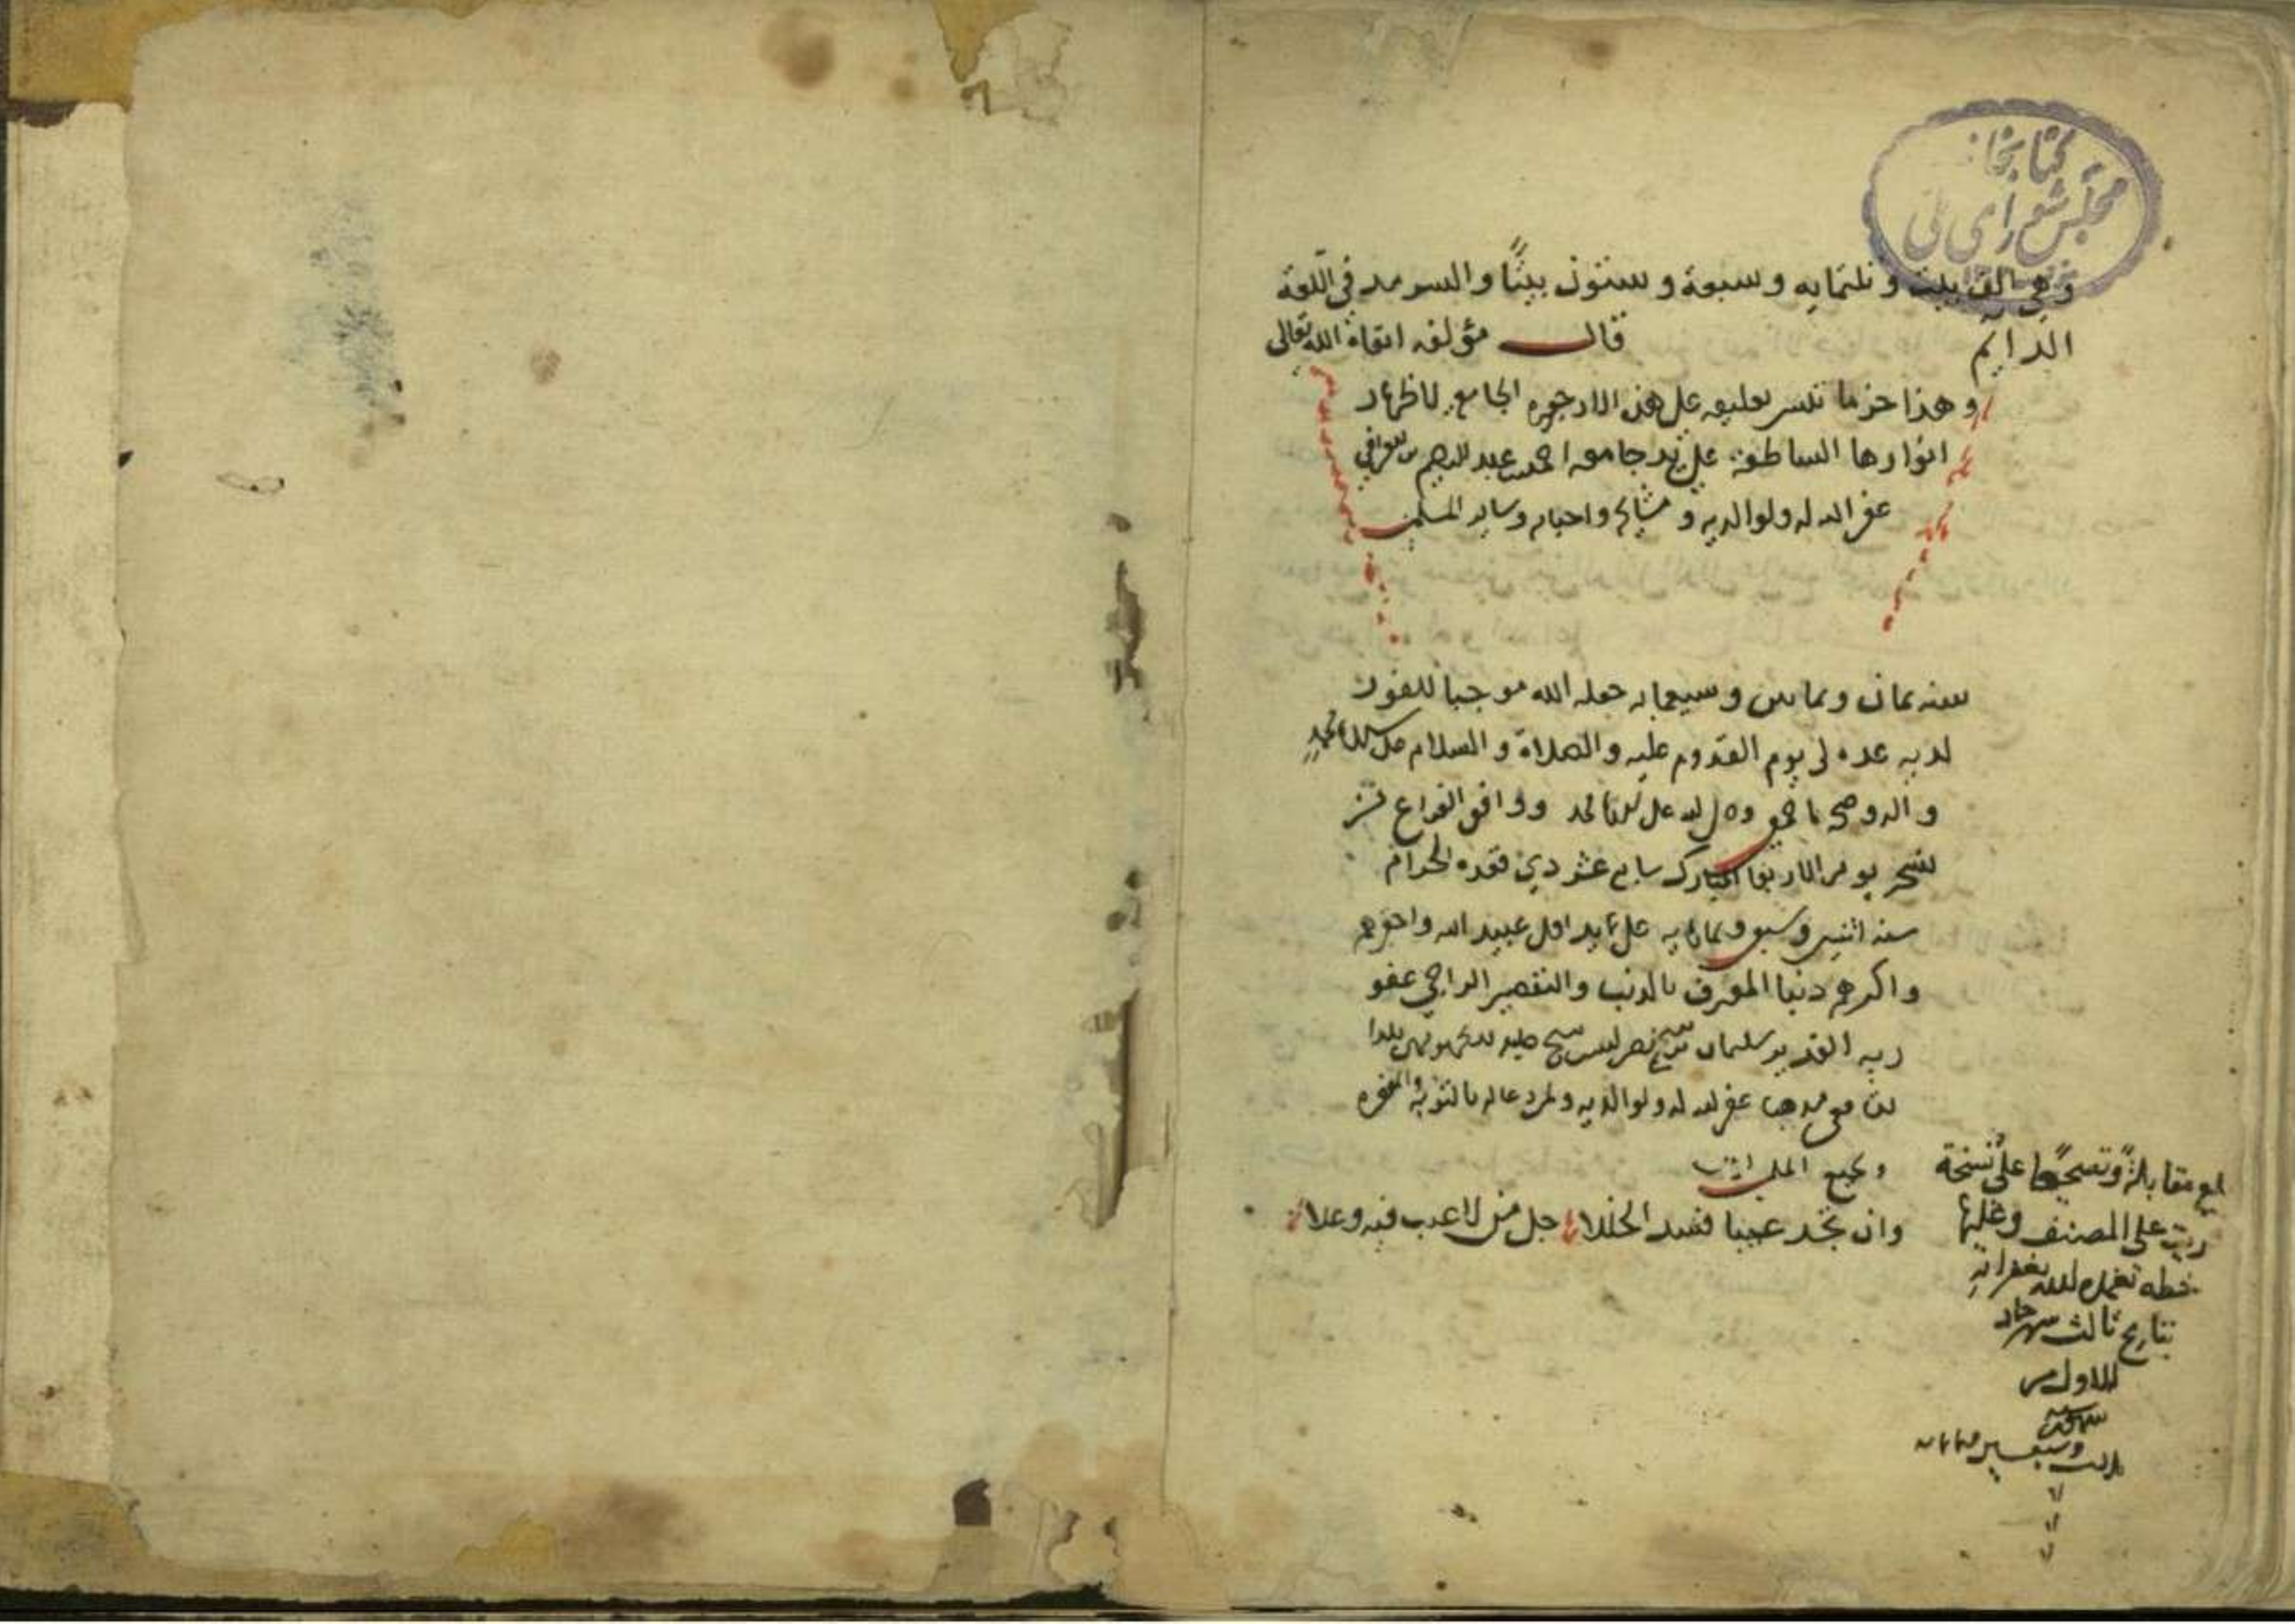 كتابخانه
مجلس شورای ملی
وهي الف بيت وثلثمايه وسبعة وستون بيتًا والسرمد في اللغة
الدايم قال مؤلفه ابقاه الله تعالى
وهذا اخر ما تيسر تعليقه على هذه الارجوزه الجامع لاظهار
انوارها الساطعة على يد جامعه احمد عبد الرحيم العراقي
غفر الله له ولوالديه و مشايخه واحبابه وساير المسلمين
سنه ثمان وثمانين وسبعمايه جعله الله موجبا للفوز
لديه عده لي يوم القدوم عليه والصلاة والسلام على سيدنا محمد
واله وصحبه اجمعين وصلى الله على سيدنا محمد ووافق الفراغ من
نسخه يوم الاربعا المبارك سابع عشر ذي قعده الحرام
سنه اثنين وسبعين وثمانمايه على يد اقل عبيد الله واحقرهم
واكثرهم ذنبا المعترف بالذنب والتقصير الراجي عفو
ربه القدير سليمان بلدا
مذهبا غفر الله له ولوالديه ولمن دعا له بالتوبة والمغفره
ولجميع المسلمين
وان تجد عيبا فسد الخللا جل من لا عيب فيه وعلا
بلغ مقابلةً وتصحيحًا على نسخة
قريت على المصنف وعليها
خطه تغمده الله بغفرانه
بتاريخ ثالث شهر جماد
الاول من
سنة
ثلاث وسبعين وثمانمايه